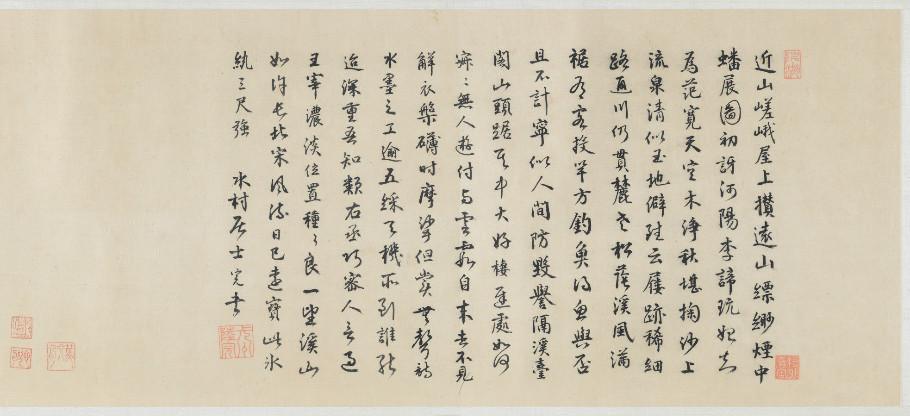 近山嵯峨屋上攢遠山縹緲煙中
蟠展圖初訝河陽李諦玩始知
為范寬天空木淨秋堪掬沙上
流泉清似玉地僻陘云屐跡稀細
路通川仍貫麓老松蔭溪風滿
裾有客投竿方釣魚得魚與否
且不計寧似人間防毀譽隔溪臺
閣山頭踞其中大好棲遲處如何
寂寂無人遊付與雲霞自來去不見
解衣槃礴時摩挲但賞無聲詩
水墨之工逾五綵天機所到誰能
追深重吾知類右丞巧密人言過
王宰濃淡位置種種良一望溪山
如許長北宋風流日已遠寶此冰
紈三尺強 水村居士完書